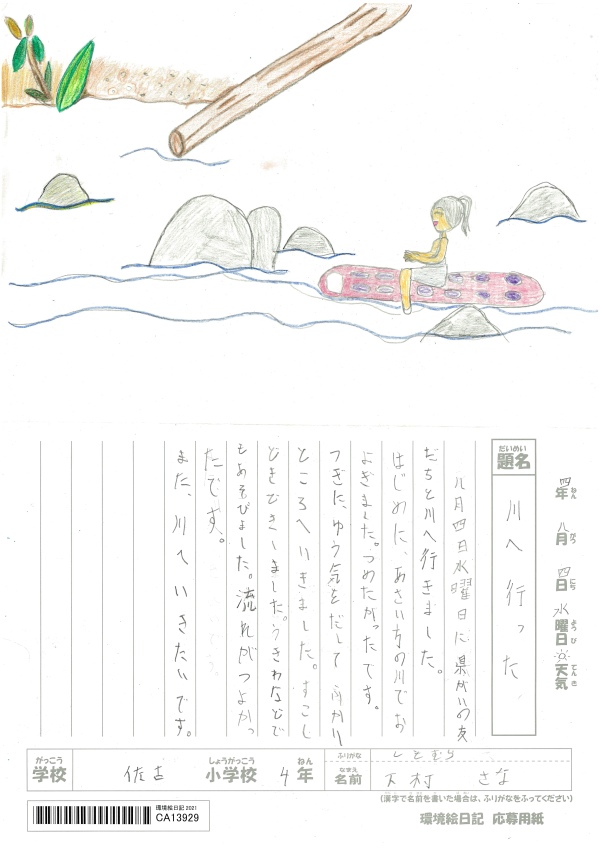 四年 八月 四日 水曜日 天気
ねん がつ にち ようび てんき
だいめい
題名
川へ行った
八月四日水曜日に、県がいの友
だちと川へ行きました。
はじめに、あさい方の川でお
よぎました。つめたかったです。
つぎに、ゆう気をだして ふかい
ところへいきました。すこし
どきどきしました。うきわなどで
もあそびました。流れがつよかっ
たです。
また、川へいきたいです。
がっこう
学校
佐古
しょうがっこう
小学校
4
ねん
年
ふりがな
なまえ
名前
村 さな
(漢字で名前を書いた場合は、ふりがなをふってください)
環境絵日記 2021
CA13929
環境絵日記 応募用紙